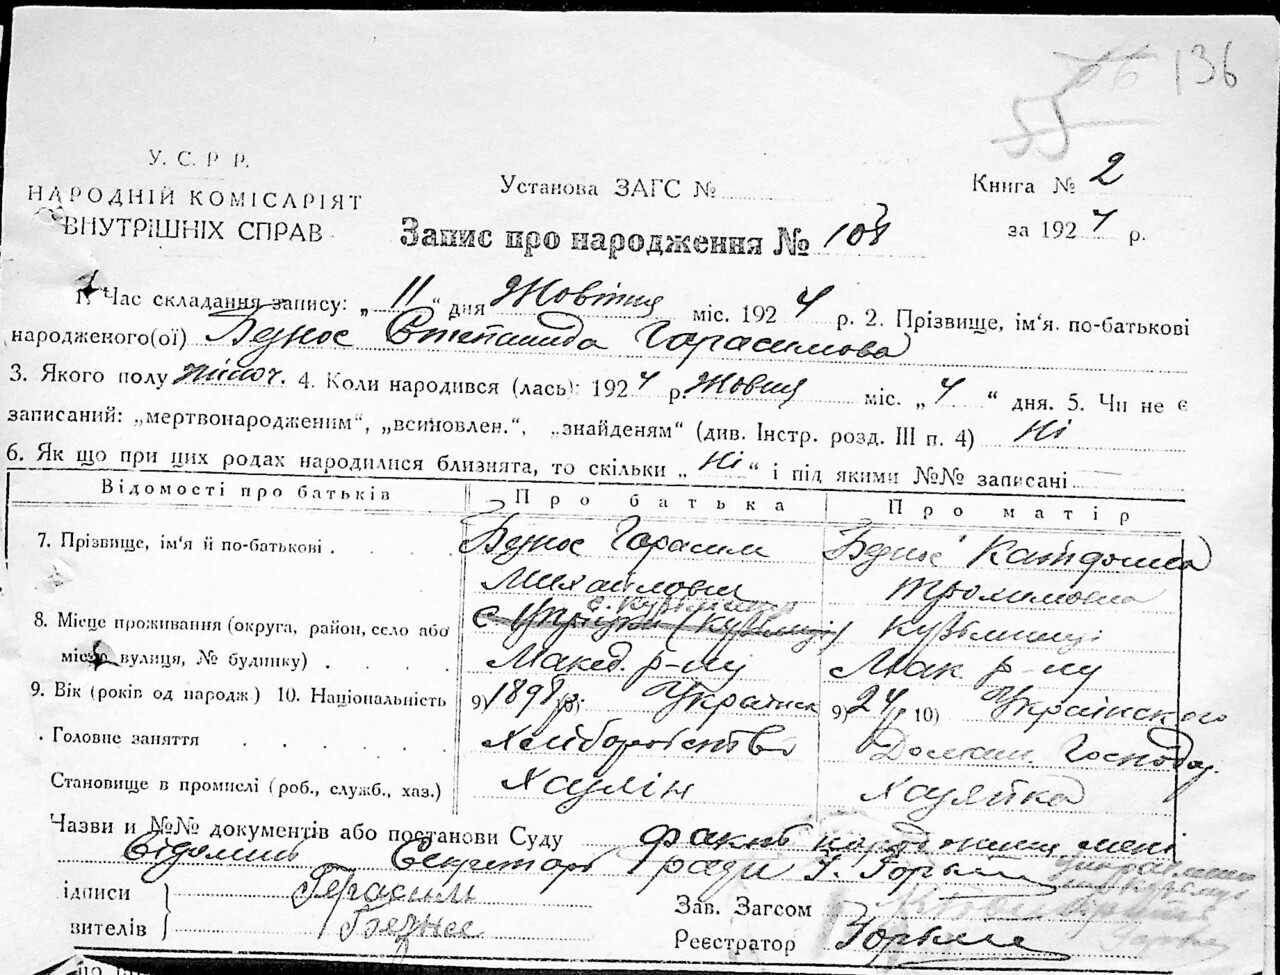 136
55
У. С. Р Р.
НАРОДНІЙ КОМІСАРІЯТ
ВНУТРІШНІХ СПРАВ
Установа ЗАГС №
Книга № 2
Запис про народження № 108
за 1924 р.
1. Час складання запису: „ 11 “ дня Жовтня міс. 1924 р. 2. Прізвище, ім‘я. по-батькові
народженого(ої) Беднос Степанида Гарасимова
3. Якого полу жіноч. 4. Коли народився (лась): 1924 р. Жовтня міс. „ 4 “ дня. 5. Чи не є
записаний: „мертвонародженим“, „всиновлен.“, „знайденям“ (див. Інстр. розд. III п. 4) Ні
6. Як що при цих родах народилися близнята, то скільки „ Ні “ і під якими №№ записані
Відомості про батьків Про батька Про матір
7. Прізвище, ім‘я й по-батькові . Беднос Гарасим
Михайлович
8. Місце проживання (округа, район, село або Кузьминці
місто вулиця, № будинку) Макед. р-ну Мак. р-ну
9. Вік (років од народж.) 10. Національність 9) 1898 р. 10) 9) 24 р. 10) Українського
. Головне заняття хліборобство Домаш. Господар.
Становище в промислі (роб., служб., хаз.) Хазяїн Хазяйка
Назви и №№ документів або постанови Суду факт народження мені
Відомий Секретар ради
ідписи Герасим
вителів Беднос
Зав. Загсом
Реєстратор